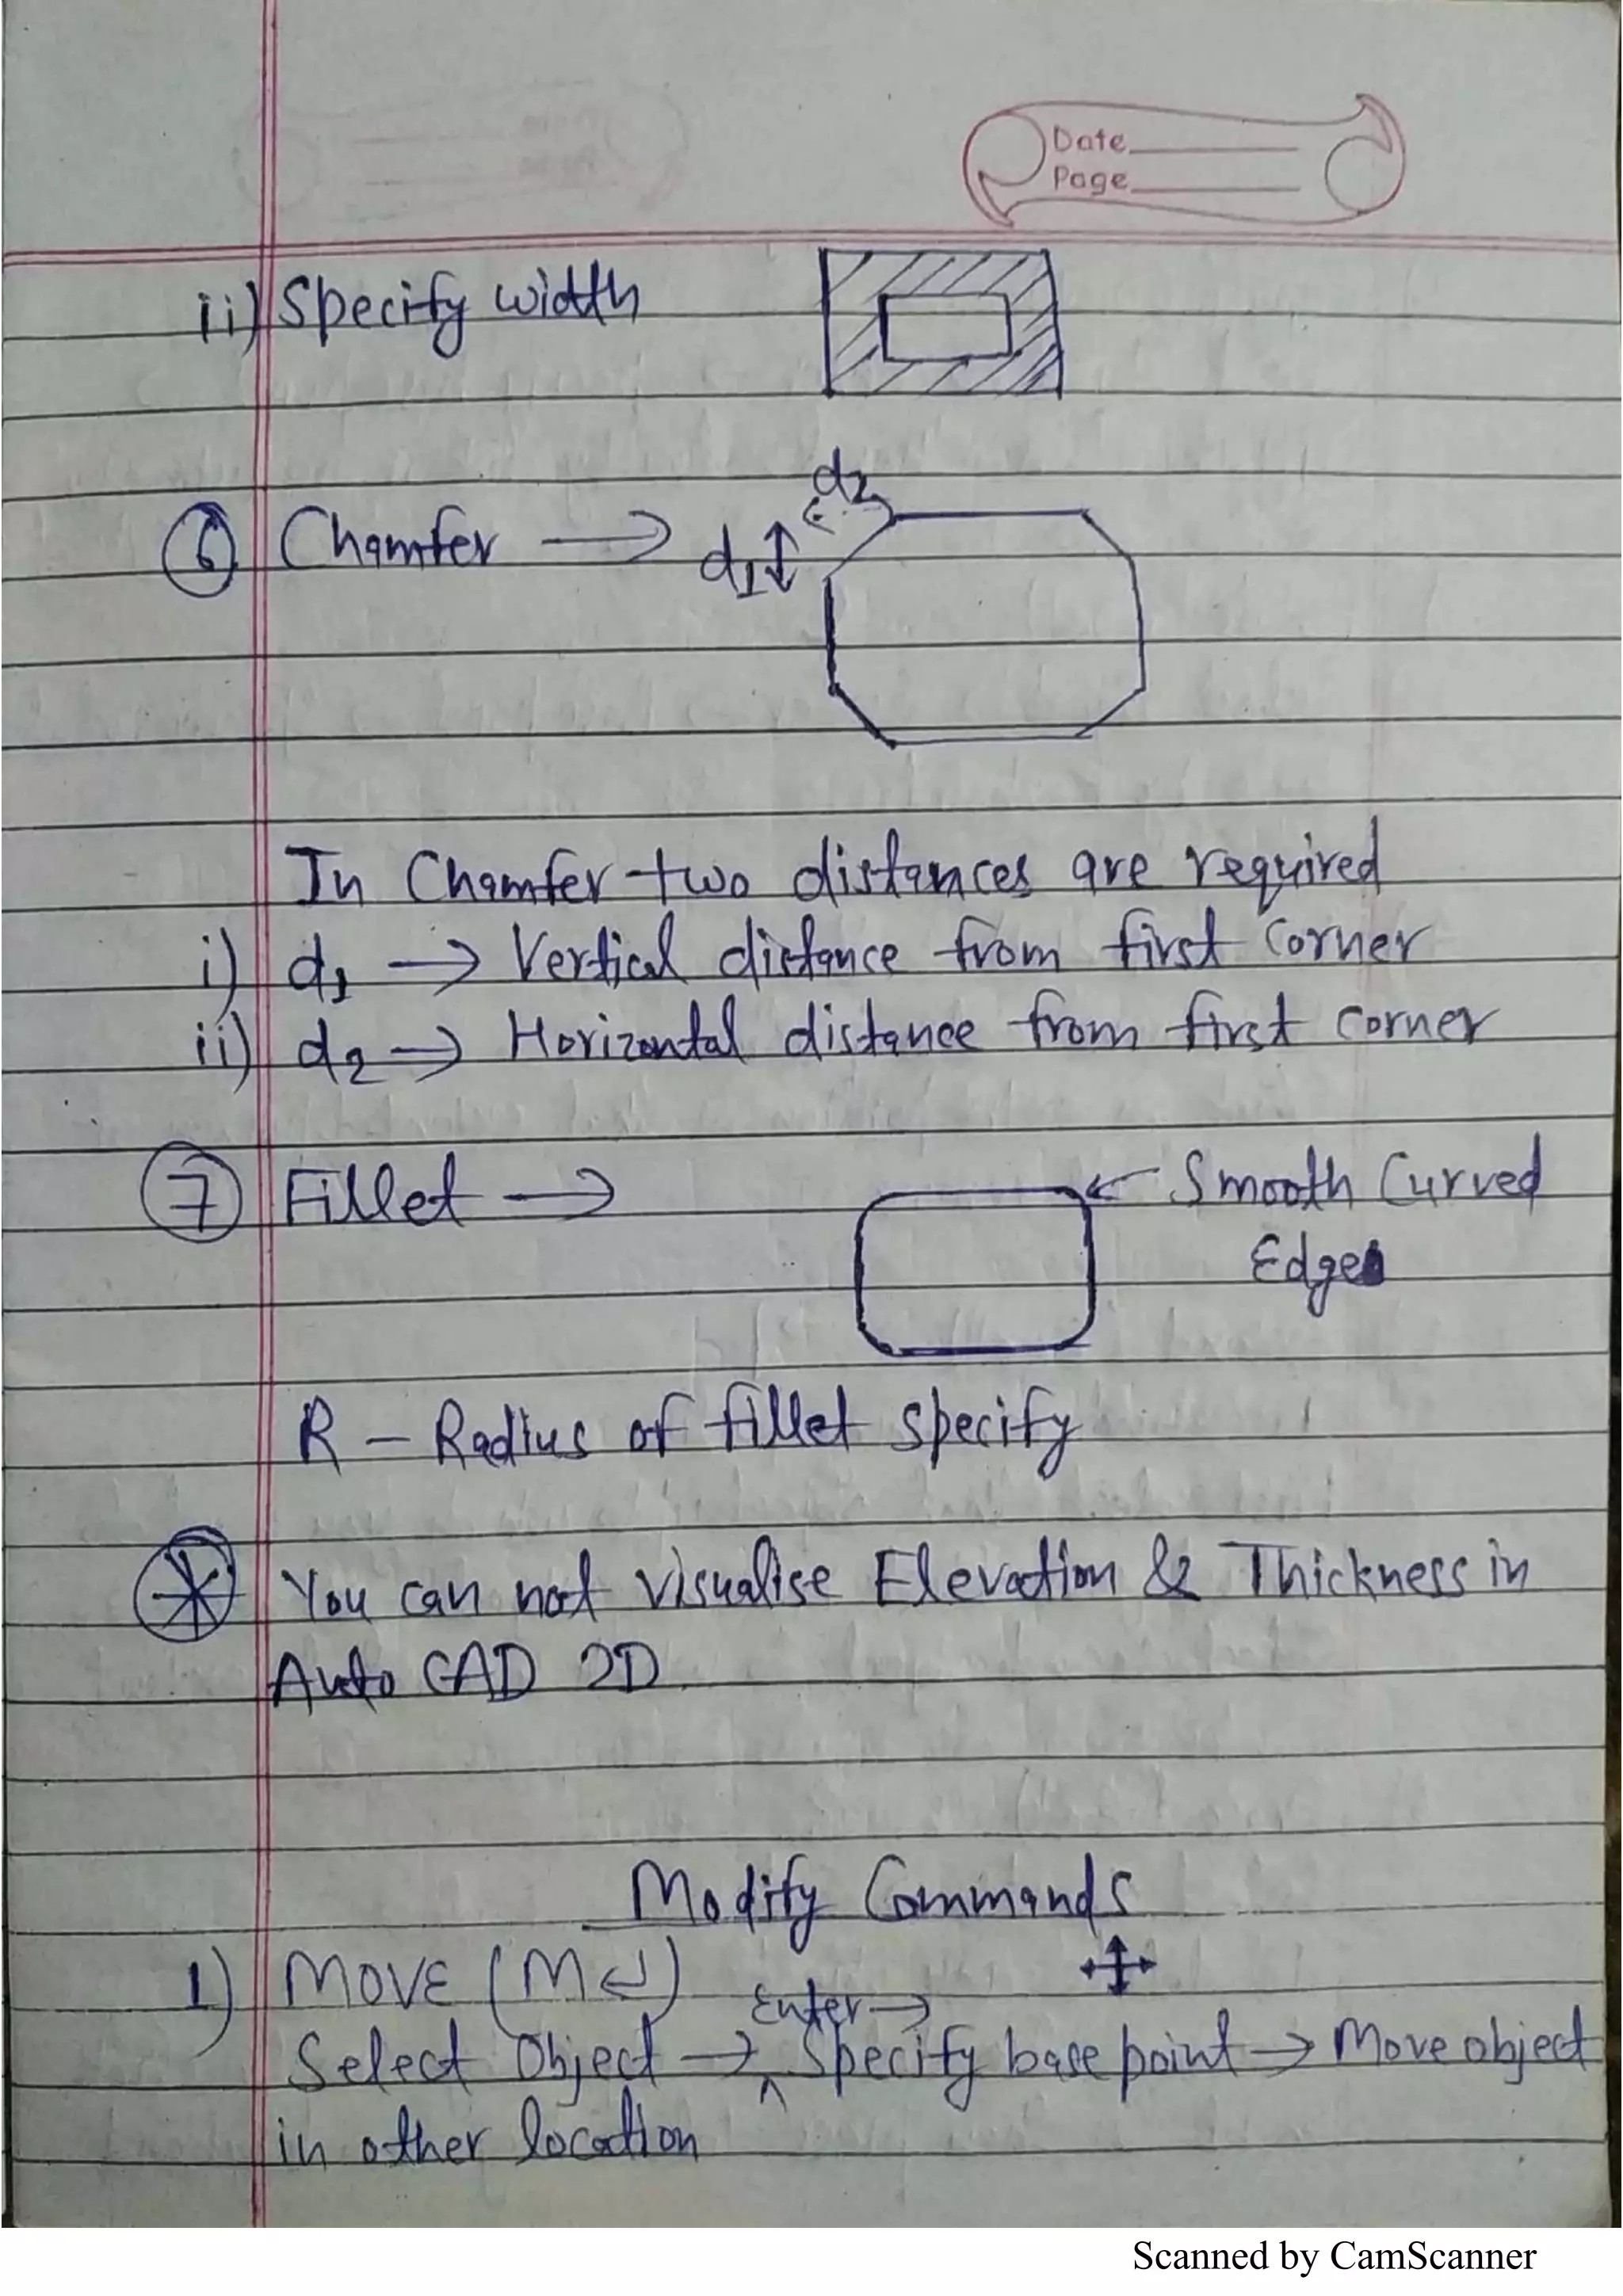 Date
Page
ii) Specify width
d2
6 Chamfer → d1
In Chamfer two distances are required
i) d1 → Vertical distance from first corner
ii) d2 → Horizontal distance from first corner
7 Fillet → ← Smooth Curved
Edge
R - Radius of fillet specify
* You can not visualise Elevation & Thickness in
Auto CAD 2D
Modify Commands
1) MOVE (M↵)
Enter →
Select Object → ^ Specify base point → Move object
in other location
Scanned by CamScanner